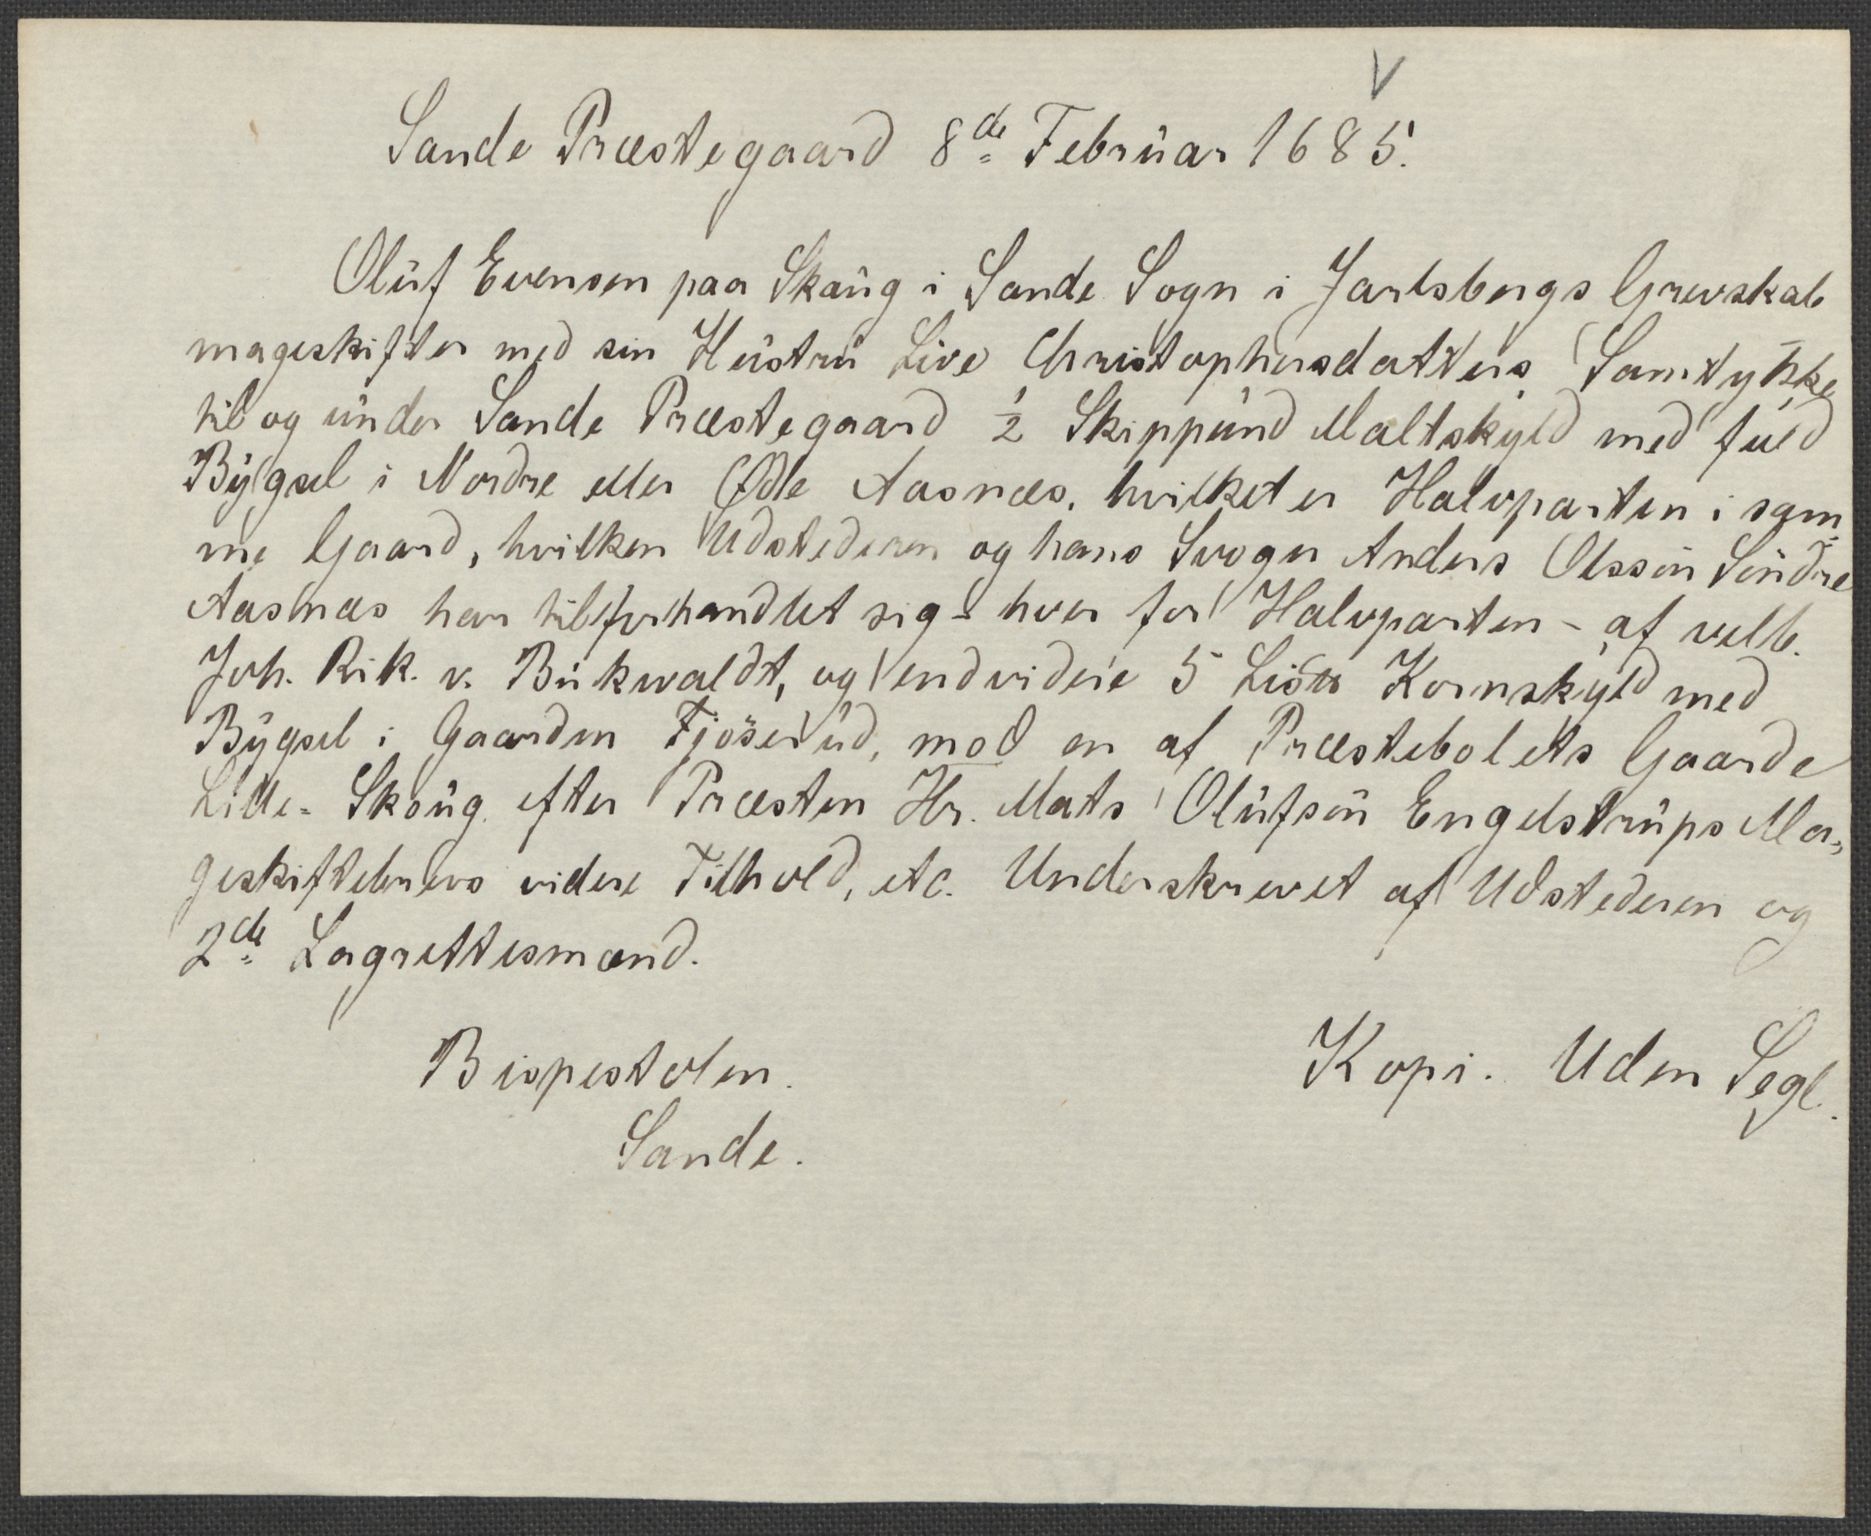 V
Sande Præstegaard 8de Februar 1685.
Oluf Evensen paa Skaug i Sande Sogn i Jarlsbergs Grevskab
mageskifter med sin Hustru Live Christophersdatters Samtykke
til og under Sande Præstegaard 1/2 Skippund Maltskyld med fuld
Bygsel i Nordre eller Øde Aasnæs, hvilket er Halvparten i sam-
me Gaard, hvilken Udstederen og hans Svoger Anders Olssøn Søndre
Aasnæs har tilforhandlet sig - hver for Halvparten - af velb.
Joh. Rik. v. Bukwaldt, og endvidere 5 Lis℔ Kornskyld med
Bygsel i Gaarden Fjøserud, mod en af Præstebolets Gaarde
Lille-Skoug efter Præsten Hr. Mats Olufsøn Engelstrups Ma-
geskiftebrevs videre Tilhold, etc. Underskrevet af Udstederen og
2de Lagrettesmænd.
Bispestolen. Kopi. Uden Segl.
Sande.